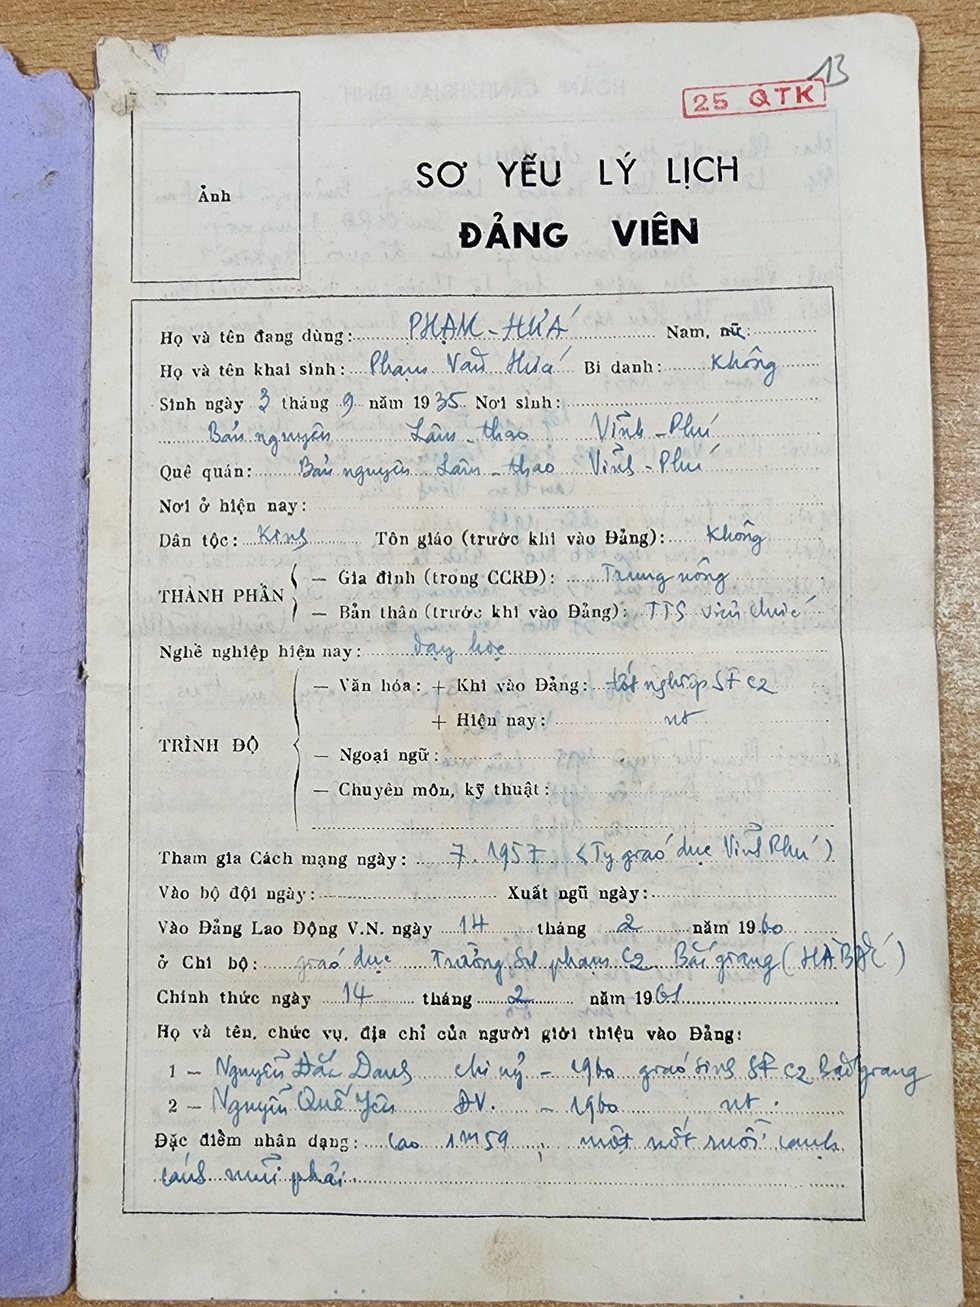 13
25 QTK
Ảnh
SƠ YẾU LÝ LỊCH
ĐẢNG VIÊN
Họ và tên đang dùng: PHẠM - HỨA Nam, nữ:
Họ và tên khai sinh: Phạm Văn Hứa Bí danh: Không
Sinh ngày 3 tháng 9 năm 1935 Nơi sinh:
Bản nguyên Lâm - thao Vĩnh - Phú
Quê quán: Bản nguyên Lâm - thao Vĩnh - Phú
Nơi ở hiện nay:
Dân tộc: Kinh Tôn giáo (trước khi vào Đảng): Không
THÀNH PHẦN
— Gia đình (trong CCRĐ): Trung nông
— Bản thân (trước khi vào Đảng): TTS viên chức
Nghề nghiệp hiện nay: dạy học
TRÌNH ĐỘ
— Văn hóa: + Khi vào Đảng: tốt nghiệp SF c2
+ Hiện nay: nt
— Ngoại ngữ:
— Chuyên môn, kỹ thuật:
Tham gia Cách mạng ngày: 7.1957 (Ty giáo dục Vĩnh Phú)
Vào bộ đội ngày: Xuất ngũ ngày:
Vào Đảng Lao Động V.N. ngày 14 tháng 2 năm 1960
ở Chi bộ: giáo dục Trường Sư phạm C2 Bắc giang (HÀ BẮC)
Chính thức ngày 14 tháng 2 năm 1961
Họ và tên, chức vụ, địa chỉ của người giới thiệu vào Đảng:
1 — Nguyễn Đắc Danh chi uỷ - 1960 giáo sinh SF c2 Bắc giang
2 — Nguyễn Quế Yên ĐV. - 1960 nt.
Đặc điểm nhận dạng: Cao 1m59, một nốt ruồi cạnh
cánh mũi phải.